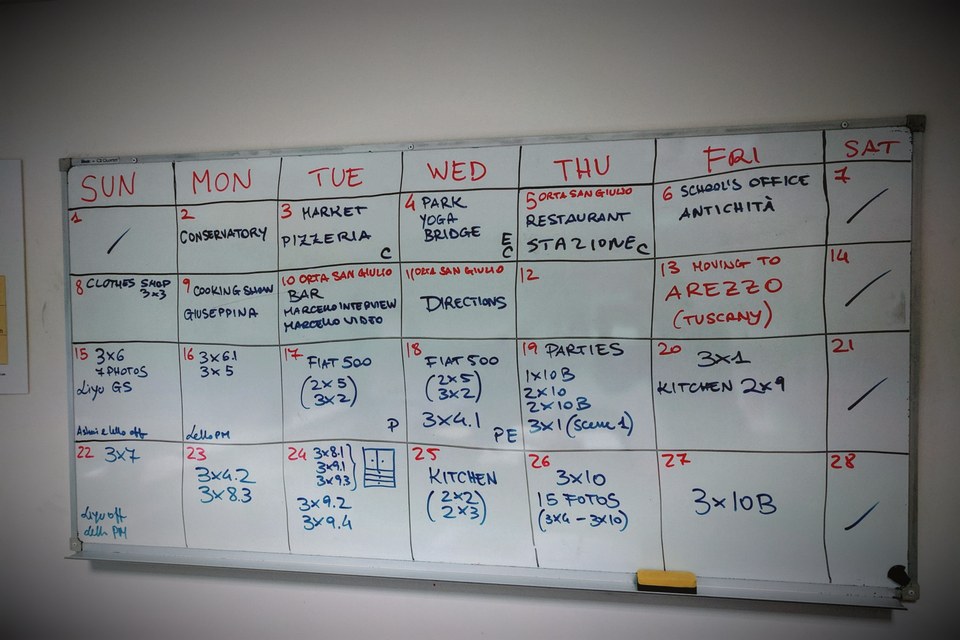 SUN MON TUE WED THU FRI SAT
1
2
CONSERVATORY
3 MARKET
PIZZERIA
C
4 PARK
YOGA
BRIDGE
E
C
5 ORTA SAN GIULIO
RESTAURANT
STAZIONE C
6 SCHOOL'S OFFICE
ANTICHITÀ
7
8 CLOTHES SHOP
3x3
9 COOKING SHOW
GIUSEPPINA
10 ORTA SAN GIULIO
BAR
MARCELLO INTERVIEW
MARCELLO VIDEO
11 ORTA SAN GIULIO
DIRECTIONS
12
13 MOVING TO
AREZZO
(TUSCANY)
14
15 3x6
7 PHOTOS
GS
lello off
16 3x6.1
3x5
Lello PM
17 FIAT 500
(2x5
3x2)
P
18 FIAT 500
(2x5
3x2)
3x4.1
PE
19 PARTIES
1x10B
2x10
2x10B
3x1 (scene 1)
20 3x1
KITCHEN 2x9
21
22 3x7
off
PM
23
3x4.2
3x8.3
24 3x8.1
3x9.1
3x9.3
3x9.2
3x9.4
25
KITCHEN
(2x2
2x3)
26
3x10
15 FOTOS
(3x4 - 3x10)
27
3x10B
28